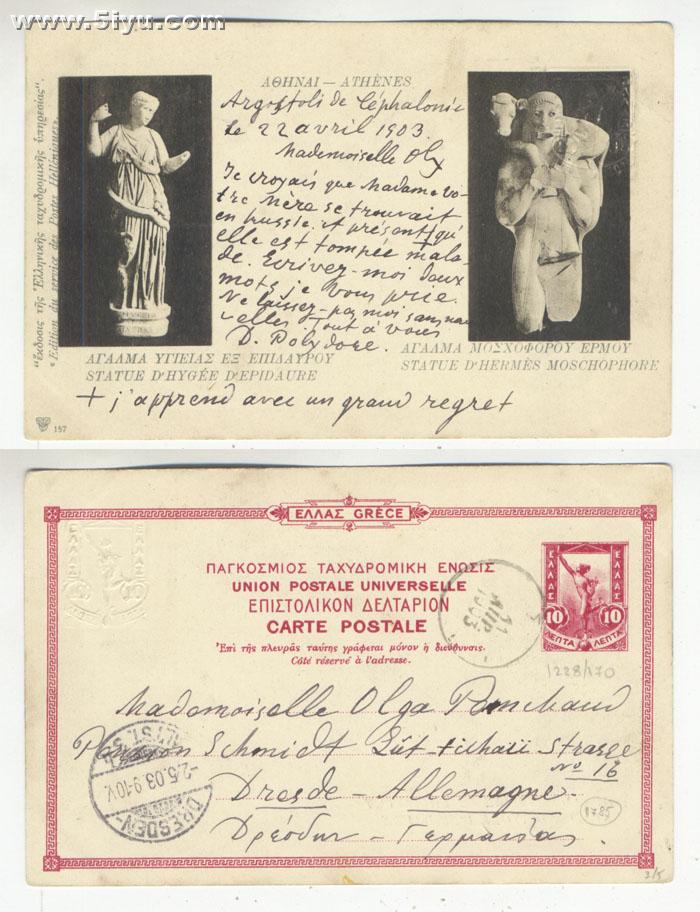 www.5iyu.com
"Ἔκδοσις τῆς Ἑλληνικῆς ταχυδρομικῆς ὑπηρεσίας".
"Edition du service des Postes Helléniques".
ΑΘΗΝΑΙ — ATHÈNES
Argostoli de Céphalonie
le 22 avril 1903.
Mademoiselle Olg
Je croyais que Madame vo-
tre Mère se trouvait
en russie et présent qu'
elle est tompée mala-
de. Ecrivez-moi deux
mots je vous prie.
Ne laissez-pas moi sans nou
velles Tout à vous
D. Polydore.
ΑΓΑΛΜΑ ΥΓΙΕΙΑΣ ΕΞ ΕΠΙΔΑΥΡΟΥ
STATUE D'HYGÉE D'EPIDAURE
ΑΓΑΛΜΑ ΜΟΣΧΟΦΟΡΟΥ ΕΡΜΟΥ
STATUE D'HERMÈS MOSCHOPHORE
+ j'apprend avec un grand regret
157
ΕΛΛΑΣ GRÈCE
ΠΑΓΚΟΣΜΙΟΣ ΤΑΧΥΔΡΟΜΙΚΗ ΕΝΩΣΙΣ
UNION POSTALE UNIVERSELLE
ΕΠΙΣΤΟΛΙΚΟΝ ΔΕΛΤΑΡΙΟΝ
CARTE POSTALE
Ἐπὶ τῆς πλευρᾶς ταύτης γράφεται μόνον ἡ διεύθυνσις.
Côté réservé à l'adresse.
ΕΛΛΑΣ ΕΛΛΑΣ
10 10
ΛΕΠΤΑ ΛΕΠΤΑ
11
ΑΠΡ
1903
1228/170
Mademoiselle Olga
Pension Schmidt Strasse
No 16
Dresde - Allemagne
Δρέσδην - Γερμανίας.
ALTST.
2.5.03.9-10V.
DRESDEN
1785
3/5